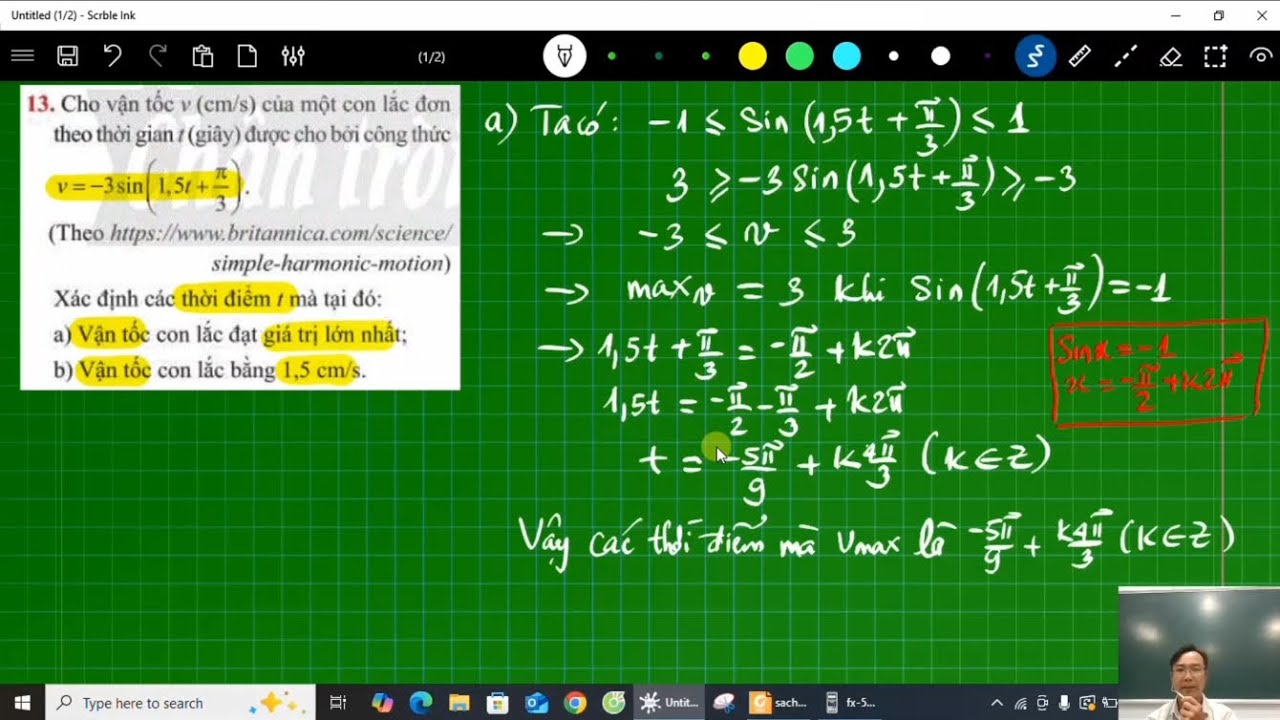 Untitled (1/2) - Scrble Ink
(1/2)
13. Cho vận tốc v (cm/s) của một con lắc đơn
theo thời gian t (giây) được cho bởi công thức
v = −3sin(1,5t + π/3).
(Theo https://www.britannica.com/science/
simple-harmonic-motion)
Xác định các thời điểm t mà tại đó:
a) Vận tốc con lắc đạt giá trị lớn nhất;
b) Vận tốc con lắc bằng 1,5 cm/s.
a) Ta có: -1 ≤ Sin (1,5t + π/3) ≤ 1
3 ≥ -3 Sin (1,5t + π/3) ≥ -3
→ -3 ≤ v ≤ 3
→ max v = 3 khi Sin (1,5t + π/3) = -1
→ 1,5t + π/3 = -π/2 + k2π
1,5t = -π/2 - π/3 + k2π
t = -5π/9 + k4π/3 (k ∈ Z)
Vậy các thời điểm mà vmax là -5π/9 + k4π/3 (k ∈ Z)
Sin x = -1
x = -π/2 + k2π
Type here to search
Untit...
sach...
fx-5...